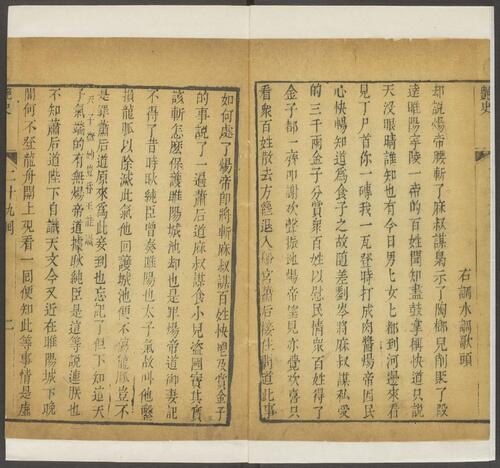 艷史
右調水調歌頭
却說煬帝腰斬了麻叔謀梟示了陶榔兒削渠了段
達睢陽寧陵一帶的百姓聞知盡鼓掌稱快道只說
天沒眼睛誰知也有今日男男女女都到河邊來看
見了尸首你一磚我一瓦登時打成肉醬煬帝因民
心快暢知道為食子之故隨差劉岑將麻叔謀私愛
的三千兩金子分賞衆百姓以慰民情衆百姓得了
金子都一齊叩謝歡聲振地煬帝見亦覺歡喜只
看衆百姓散去方纔退入後宮蕭后接住問道此事
如何處了煬帝即將斬麻叔謀百姓快暢及賞金子
的事說了一遍蕭后道麻叔謀食小兒盜國寶其實
該斬怎麼保護睢陽城池却也是罪煬帝道御妻記
不得了昔時耿純臣曾奏睢陽也太子氣故叫他鑿
損龍脈以除滅此氣他回護城池便不鑿龍脈豈不
是罪蕭后道原來為此妾到也忘記了但不知這天
子氣端的有無煬帝道據耿純臣是這等說連朕也
不知蕭后道陛下自識天文今又近在睢陽城下晚
間何不登龍舟閣上觀看一回便知此等事情是虛
艷史
二十九回
二